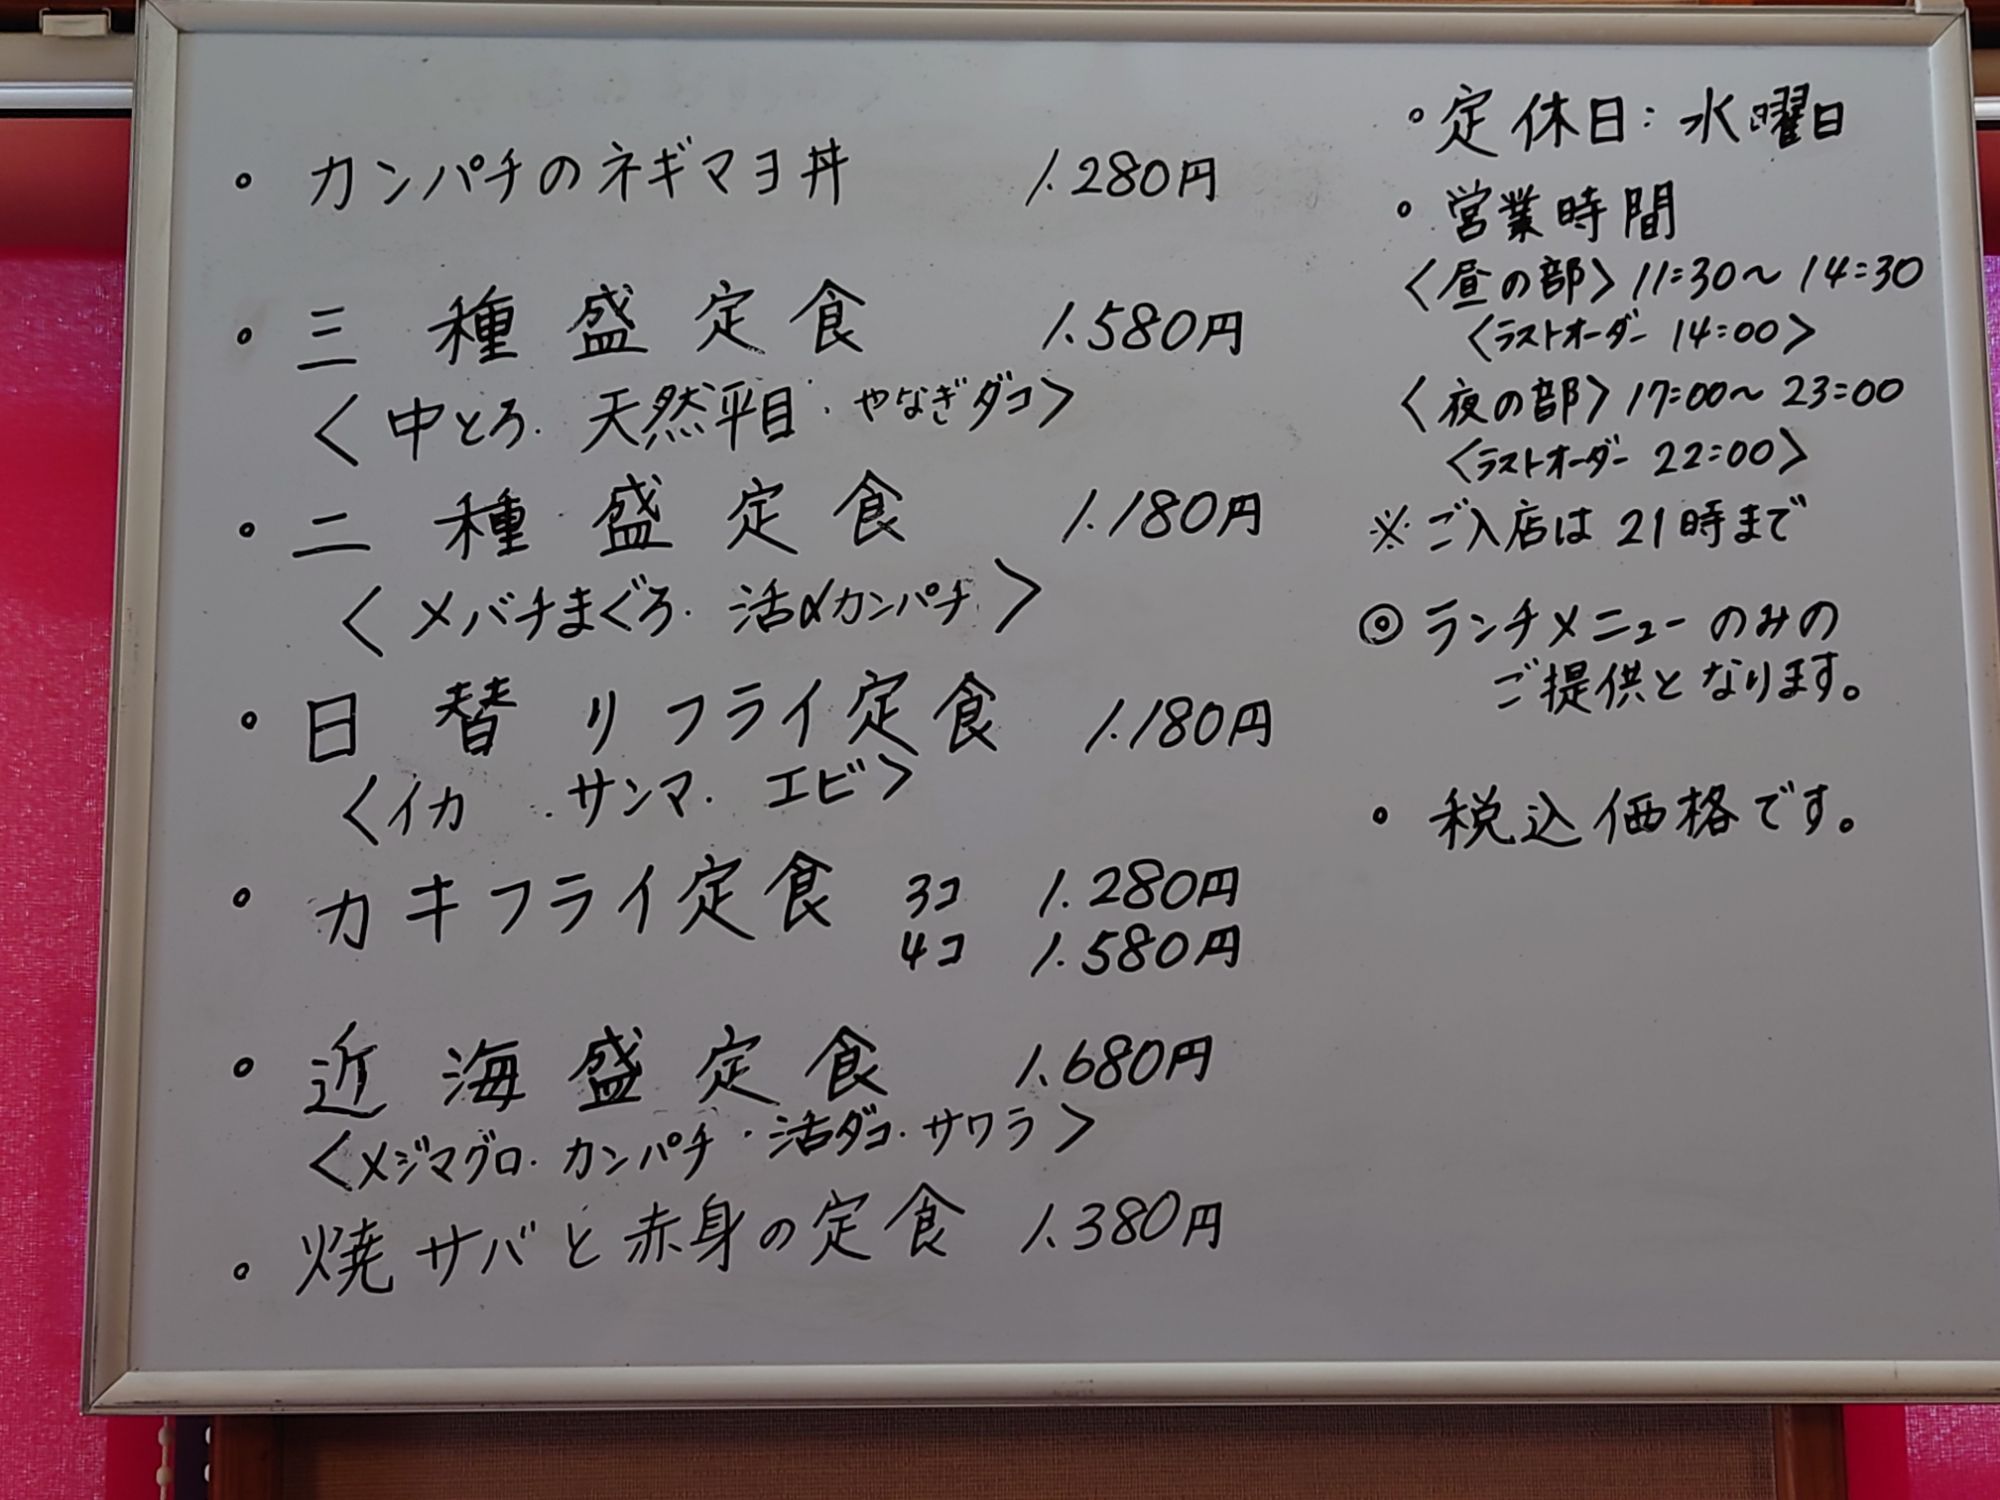 。カンパチのネギマヨ丼 1.280円
。三種盛定食 1.580円
〈中とろ．天然平目．やなぎダコ〉
。二種盛定食 1.180円
〈メバチまぐろ．活〆カンパチ〉
。日替リフライ定食 1.180円
〈イカ．サンマ．エビ〉
。カキフライ定食 3コ 1.280円
4コ 1.580円
。近海盛定食 1.680円
〈メジマグロ．カンパチ・活ダコ．サワラ〉
。焼サバと赤身の定食 1.380円
。定休日：水曜日
。営業時間
〈昼の部〉11:30～14:30
〈ラストオーダー 14:00〉
〈夜の部〉17:00～23:00
〈ラストオーダー 22:00〉
※ご入店は21時まで
◎ランチメニューのみの
ご提供となります。
。税込価格です。